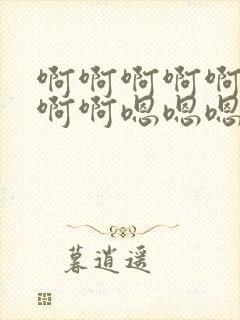 啊啊啊啊啊
啊啊嗯嗯嗯
暮逍遥